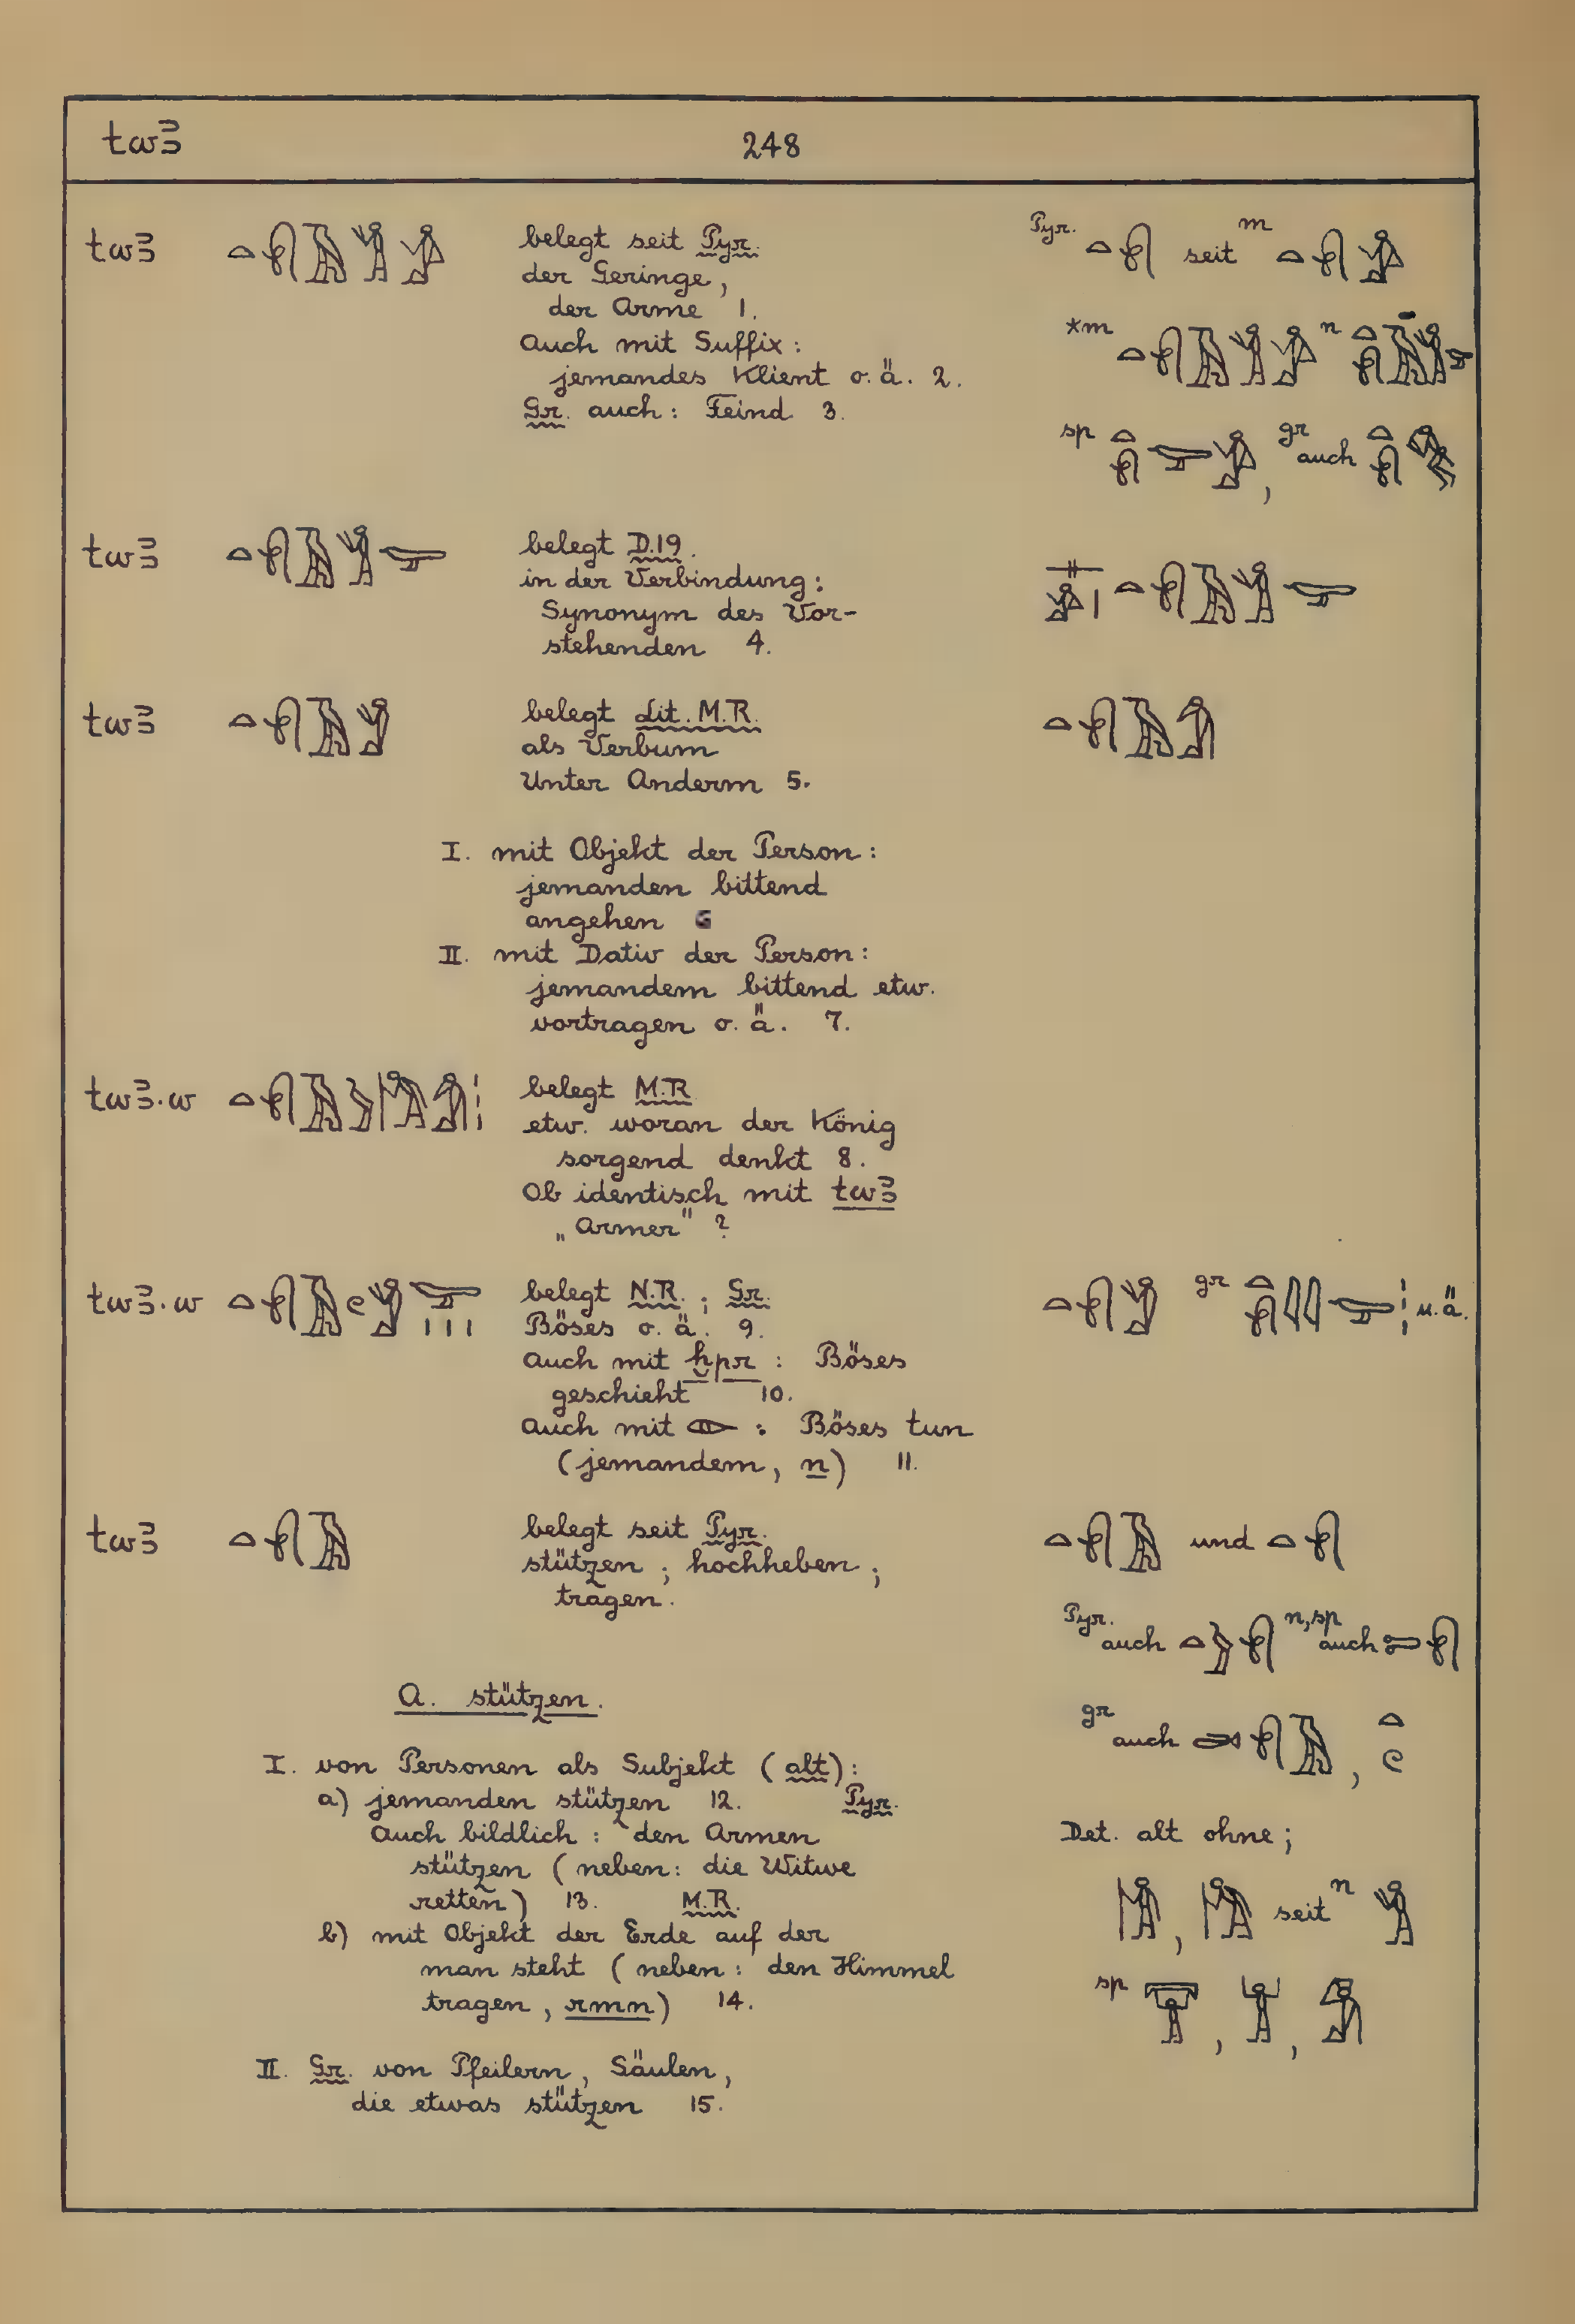 twꜣ 248
twꜣ belegt seit Pyr.
der Geringe,
der Arme 1.
Auch mit Suffix:
jemandes Klient o.ä. 2.
Gr. auch: Feind 3.
Pyr. seit m
*m n
sp , gr auch
twꜣ belegt D.19.
in der Verbindung:
Synonym des Vor-
stehenden 4.
twꜣ belegt Lit. M.R.
als Verbum
Unter Anderm 5.
I. mit Objekt der Person:
jemanden bittend
angehen 6
II. mit Dativ der Person:
jemandem bittend etw.
vortragen o.ä. 7.
twꜣ.w belegt M.R.
etw. woran der König
sorgend denkt 8.
Ob identisch mit twꜣ
„Armer" ?
twꜣ.w belegt N.R.; Gr.
Böses o.ä. 9.
Auch mit ḫpr : Böses
geschieht 10.
Auch mit 𓁹 : Böses tun
(jemandem, n) 11.
gr u.ä.
twꜣ belegt seit Pyr.
stützen; hochheben;
tragen.
und
Pyr. auch n,sp auch
gr auch ,
A. stützen.
I. von Personen als Subjekt (alt):
a) jemanden stützen 12. Pyr.
Auch bildlich: den Armen
stützen (neben: die Witwe
retten) 13. M.R.
b) mit Objekt der Erde auf der
man steht (neben: den Himmel
tragen, rmn) 14.
II. Gr. von Pfeilern, Säulen,
die etwas stützen 15.
Det. alt ohne;
, seit n
sp , ,